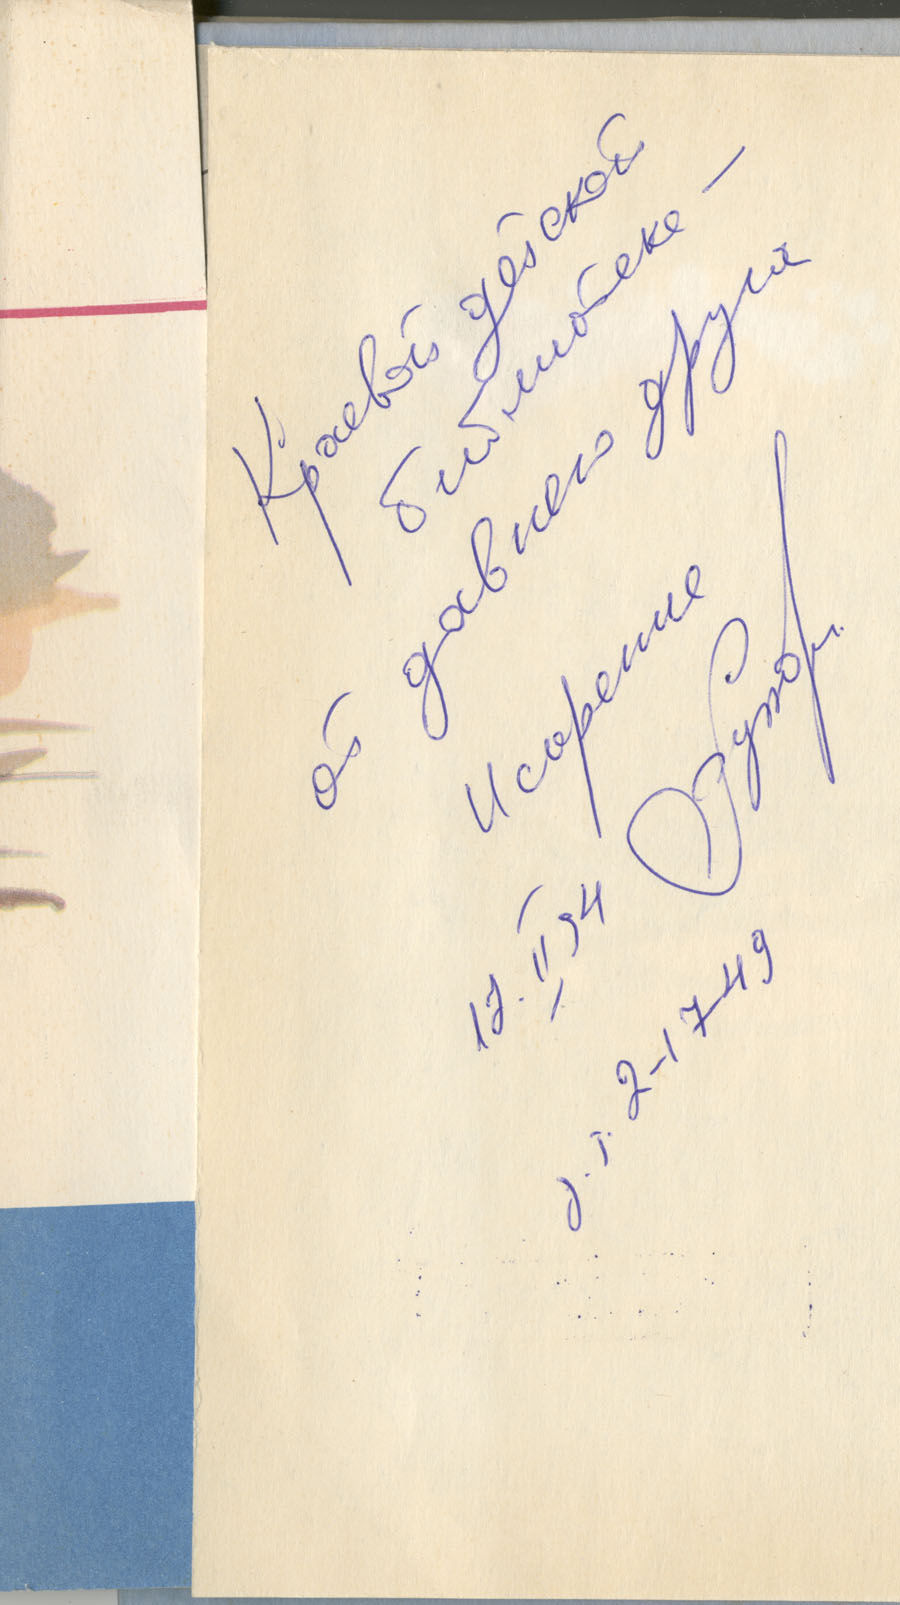 Краевой детской
библиотеке —
от давнего друга
Искренне
17.II 94
д.т. 2-17-49